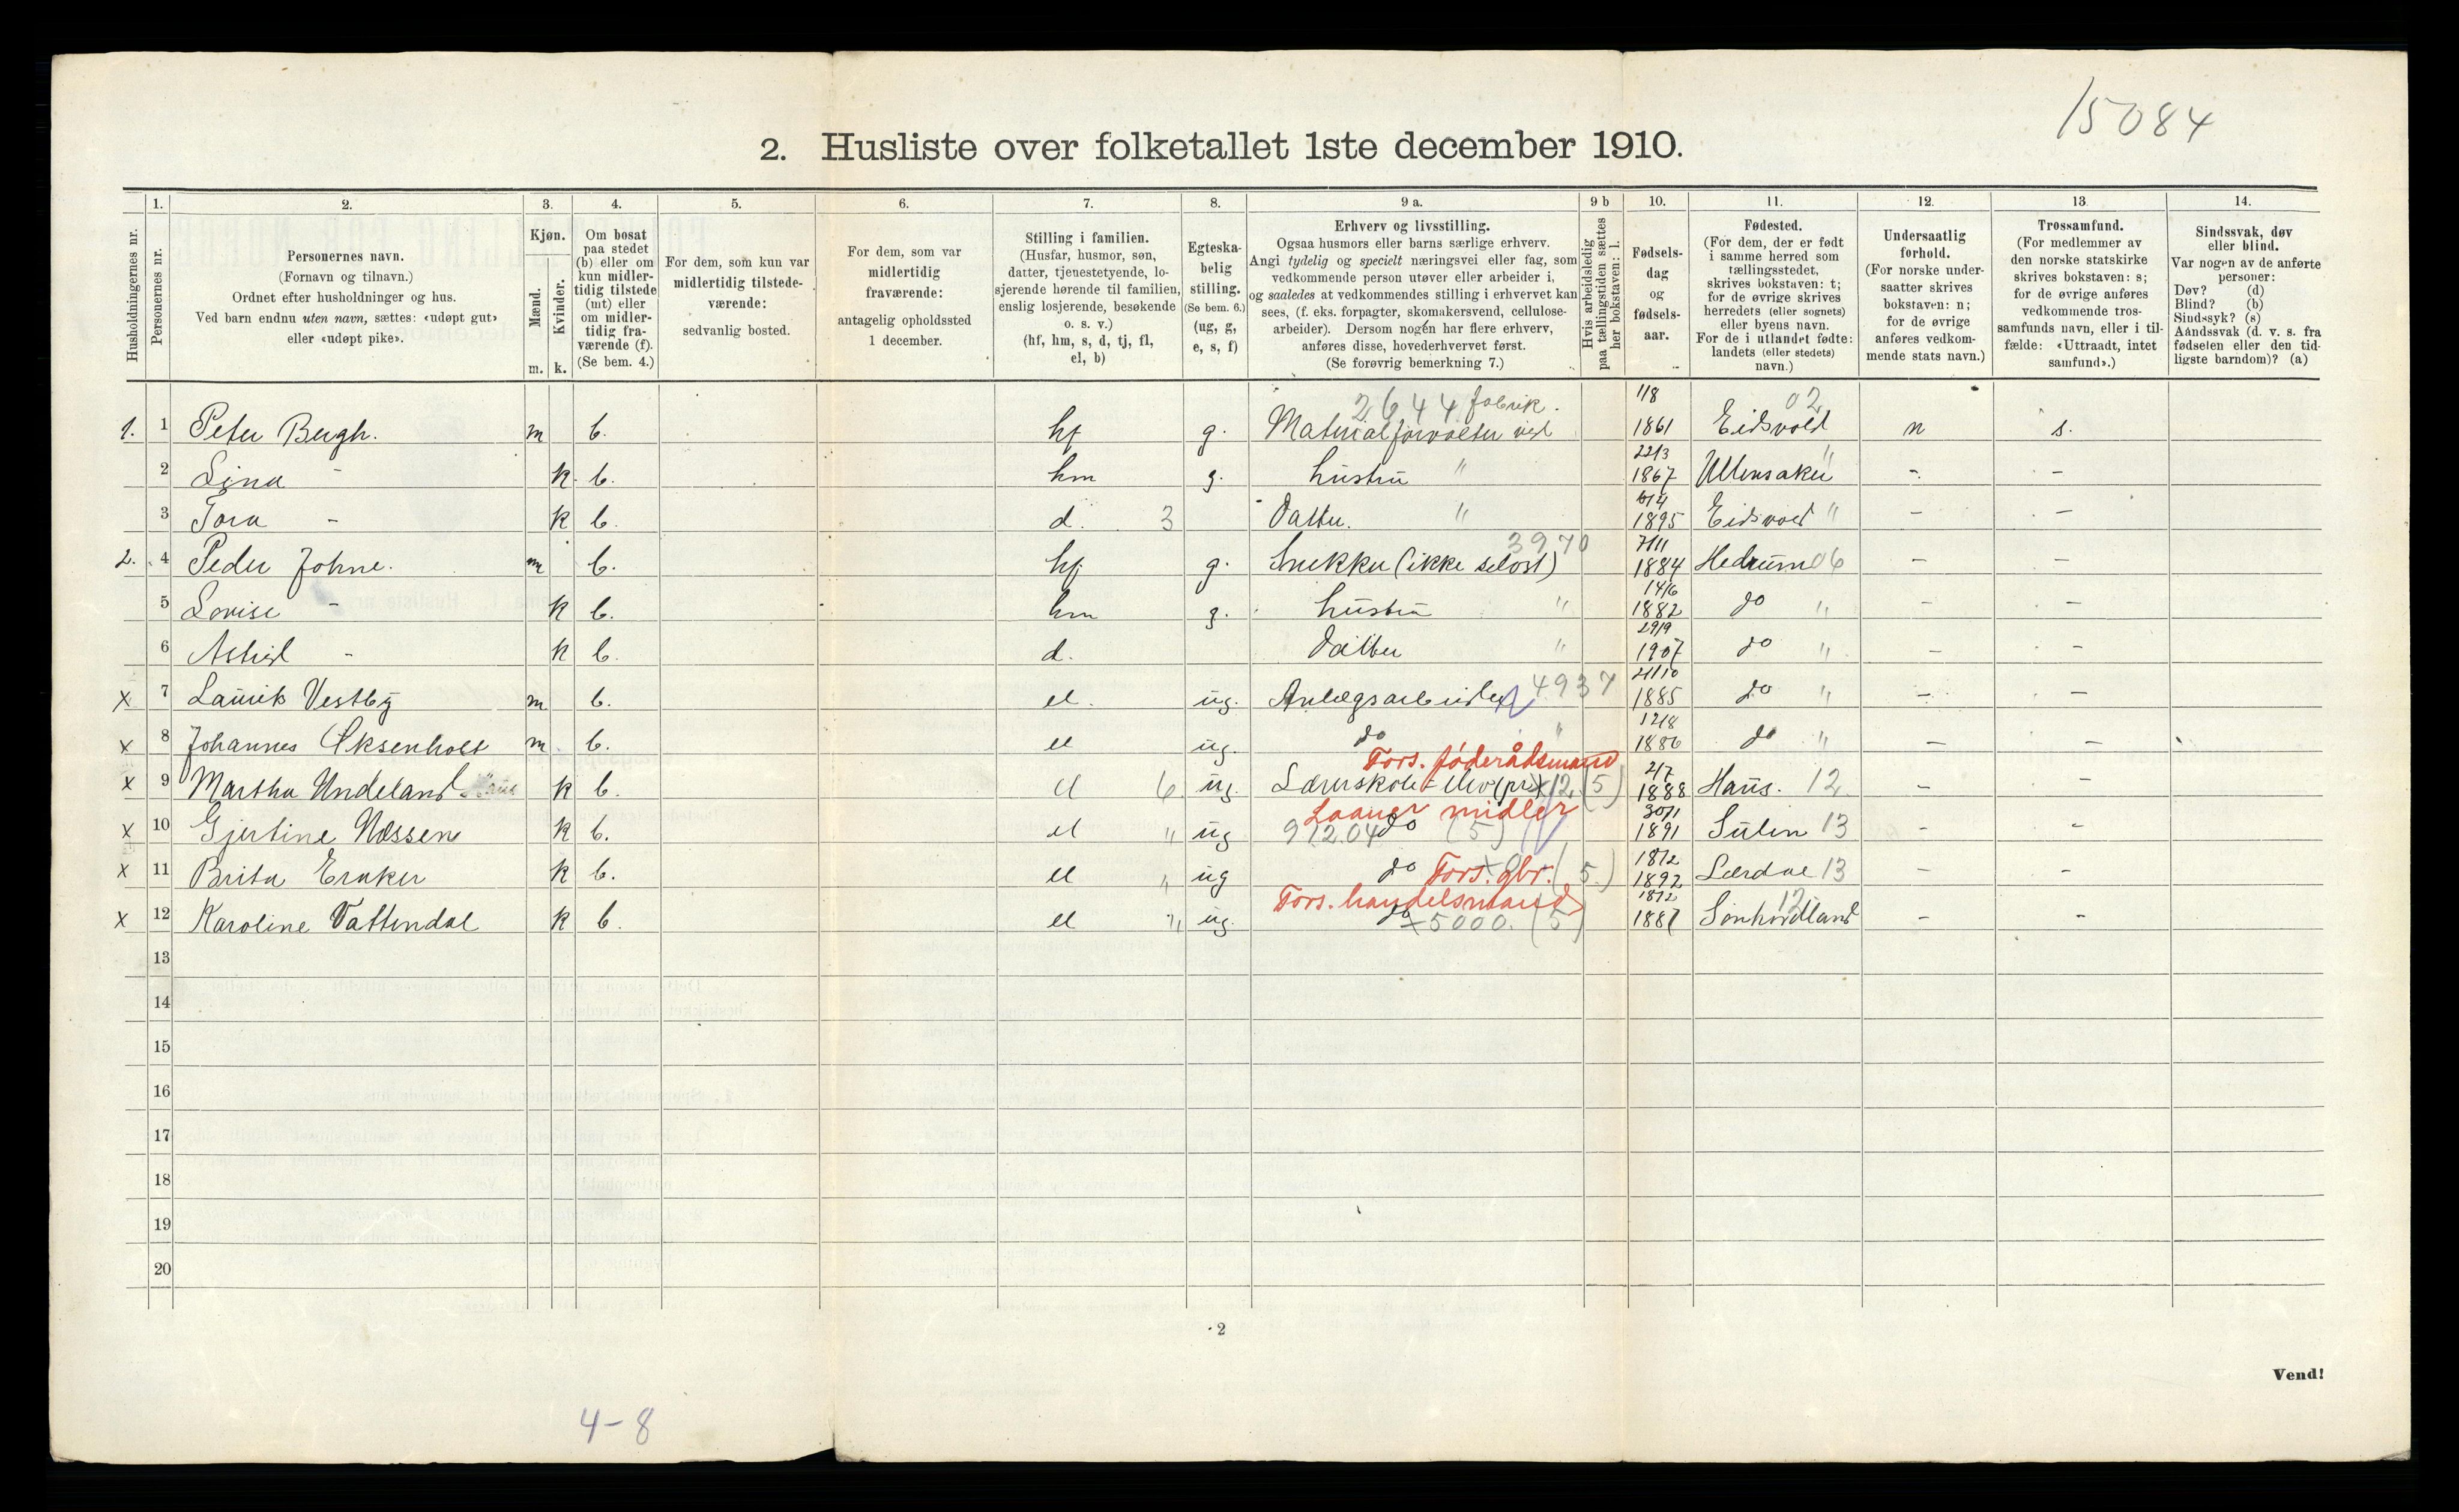 15084
2. Husliste over folketallet 1ste december 1910.
Husholdningernes nr.
1.
Personernes nr.
2.
Personernes navn.
(Fornavn og tilnavn.)
Ordnet efter husholdninger og hus.
Ved barn endnu uten navn, sættes: «udøpt gut»
eller «udøpt pike».
3.
Kjøn.
Mænd.
Kvinder.
m. k.
4.
Om bosat
paa stedet
(b) eller om
kun midler-
tidig tilstede
(mt) eller
om midler-
tidig fra-
værende (f).
(Se bem. 4.)
5.
For dem, som kun var
midlertidig tilstede-
værende:
sedvanlig bosted.
6.
For dem, som var
midlertidig
fraværende:
antagelig opholdssted
1 december.
7.
Stilling i familien.
(Husfar, husmor, søn,
datter, tjenestetyende, lo-
sjerende hørende til familien,
enslig losjerende, besøkende
o. s. v.)
(hf, hm, s, d, tj, fl,
el, b)
8.
Egteska-
belig
stilling.
(Se bem. 6.)
(ug, g,
e, s, f)
9 a.
Erhverv og livsstilling.
Ogsaa husmors eller barns særlige erhverv.
Angi tydelig og specielt næringsvei eller fag, som
vedkommende person utøver eller arbeider i,
og saaledes at vedkommendes stilling i erhvervet kan
sees, (f. eks. forpagter, skomakersvend, cellulose-
arbeider). Dersom nogen har flere erhverv,
anføres disse, hovederhvervet først.
(Se forøvrig bemerkning 7.)
9 b
Hvis arbeidsledig
paa tællingstiden sættes
her bokstaven: l.
10.
Fødsels-
dag
og
fødsels-
aar.
11.
Fødested.
(For dem, der er født
i samme herred som
tællingsstedet,
skrives bokstaven: t;
for de øvrige skrives
herredets (eller sognets)
eller byens navn.
For de i utlandet fødte:
landets (eller stedets)
navn.)
12.
Undersaatlig
forhold.
(For norske under-
saatter skrives
bokstaven: n;
for de øvrige
anføres vedkom-
mende stats navn.)
13.
Trossamfund.
(For medlemmer av
den norske statskirke
skrives bokstaven: s;
for de øvrige anføres
vedkommende tros-
samfunds navn, eller i til-
fælde: «Uttraadt, intet
samfund».)
14.
Sindssvak, døv
eller blind.
Var nogen av de anførte
personer:
Døv? (d)
Blind? (b)
Sindssyk? (s)
Aandssvak (d. v. s. fra
fødselen eller den tid-
ligste barndom)? (a)
2644 fabrik. 1/8 02
1. 1 Peter Bergh. m b. hf g. Materialforvalter ved 1861 Eidsvold n s.
22/3
2 Lina - k b. hm g. hustru " 1867 Ullensaker " - -
3 Tora - k b. d. 3 Datter. " 1895 Eidsvold " - -
3970 7/11
2. 4 Peder Johne. m b. hf g. Snekker (ikke selvst) 1884 Hedrum 06 - -
14/6
5 Lovise - k b. hm g. hustru " 1882 do " - -
29/9
6 Astrid - k b. d. Datter " 1907 do " - -
21/10
x 7 Laurik Vestby m b. el. ug. Anlægsarbeider 4937 1885 do " - -
12/8
x 8 Johannes Oksenholt m b. el ug. do " 1886 do " - -
Fors. føderådsmand 2/7
x 9 Martha Undeland k b. el 6 ug. Lærerskole-elev (pr) x12. (5) 1888 Haus. 12 - -
Laaner midler 30/1
x 10 Gjertine Næssen k b. el " ug 91204 do (5) 1891 Sulen 13 - -
18/12
x 11 Brita Eraker k b. el " ug do Fors. gbr. (5) 1892 Lærdal 13 - -
Fors. handelsmand 18/12 12
x 12 Karoline Vattendal k b. el " ug. do x5000. (5) 1887 Sønhordland - -
13
14
15
16
17
18
19
20
2
Vend!
4-8